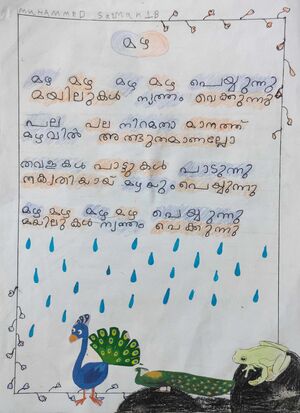 MUHAMMED
മഴ
മഴ മഴ മഴ മഴ പെയ്യുന്നു
മയിലുകൾ നൃത്തം വെക്കുന്നു
പല പല നിറമതാ മാനത്ത്
മഴവിൽ അത്ഭുതമാണല്ലോ
തവളകൾ പാട്ടുകൾ പാടുന്നു
മഴയും പെയ്യുന്നു
മഴ മഴ മഴ മഴ പെയ്യുന്നു
മയിലുകൾ നൃത്തം വെക്കുന്നു